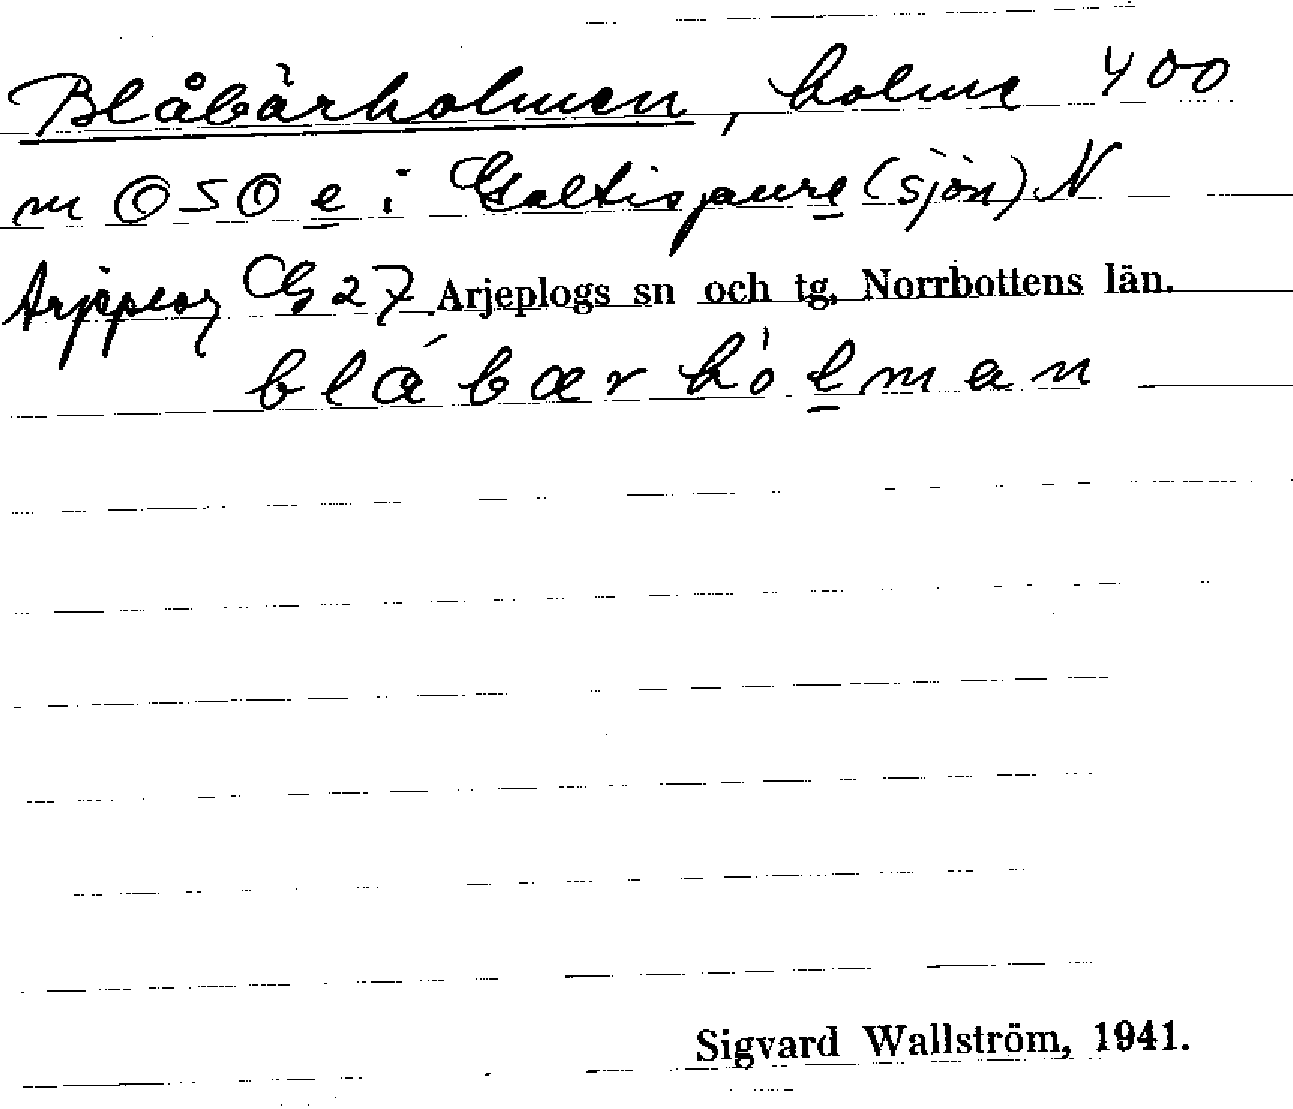 Blåbärholmen, holme 400
m OSO e i Galtisjaure (sjön) N
Arjeplog G 27 Arjeplogs sn och tg. Norrbottens län.
blábærhòlman
Sigvard Wallström, 1941.